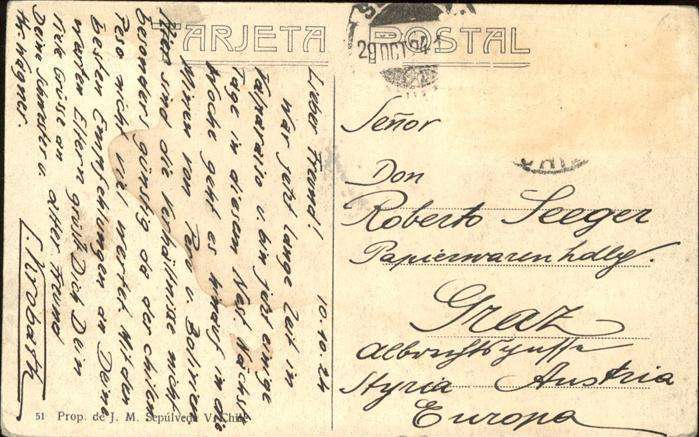 TARJETA POSTAL
29 OCT 24
CHILE
10.10.24
Lieber Freund!
War jetzt lange Zeit in
Valparaiso u. bin jetzt einige
Tage in diesem Nest. Nächste
Woche geht es hinauf in die
Minen von Peru u. Bolivien
Hier sind die Verhältnisse nicht
besonders günstig da der chilen
Peso nicht viel wertet. Mit den
besten Empfehlungen an Deine
waren Eltern grüßt Dich Dein
alter Freund
Viele Grüsse an
Deine Schwester u.
Hr. Wagner.
Señor
Don
Roberto Seeger
Papierwarenhdlg.
Graz
Albrechtgasse
Styria Austria
Europa
51 Prop. de J. M. Sepúlveda V. Chile